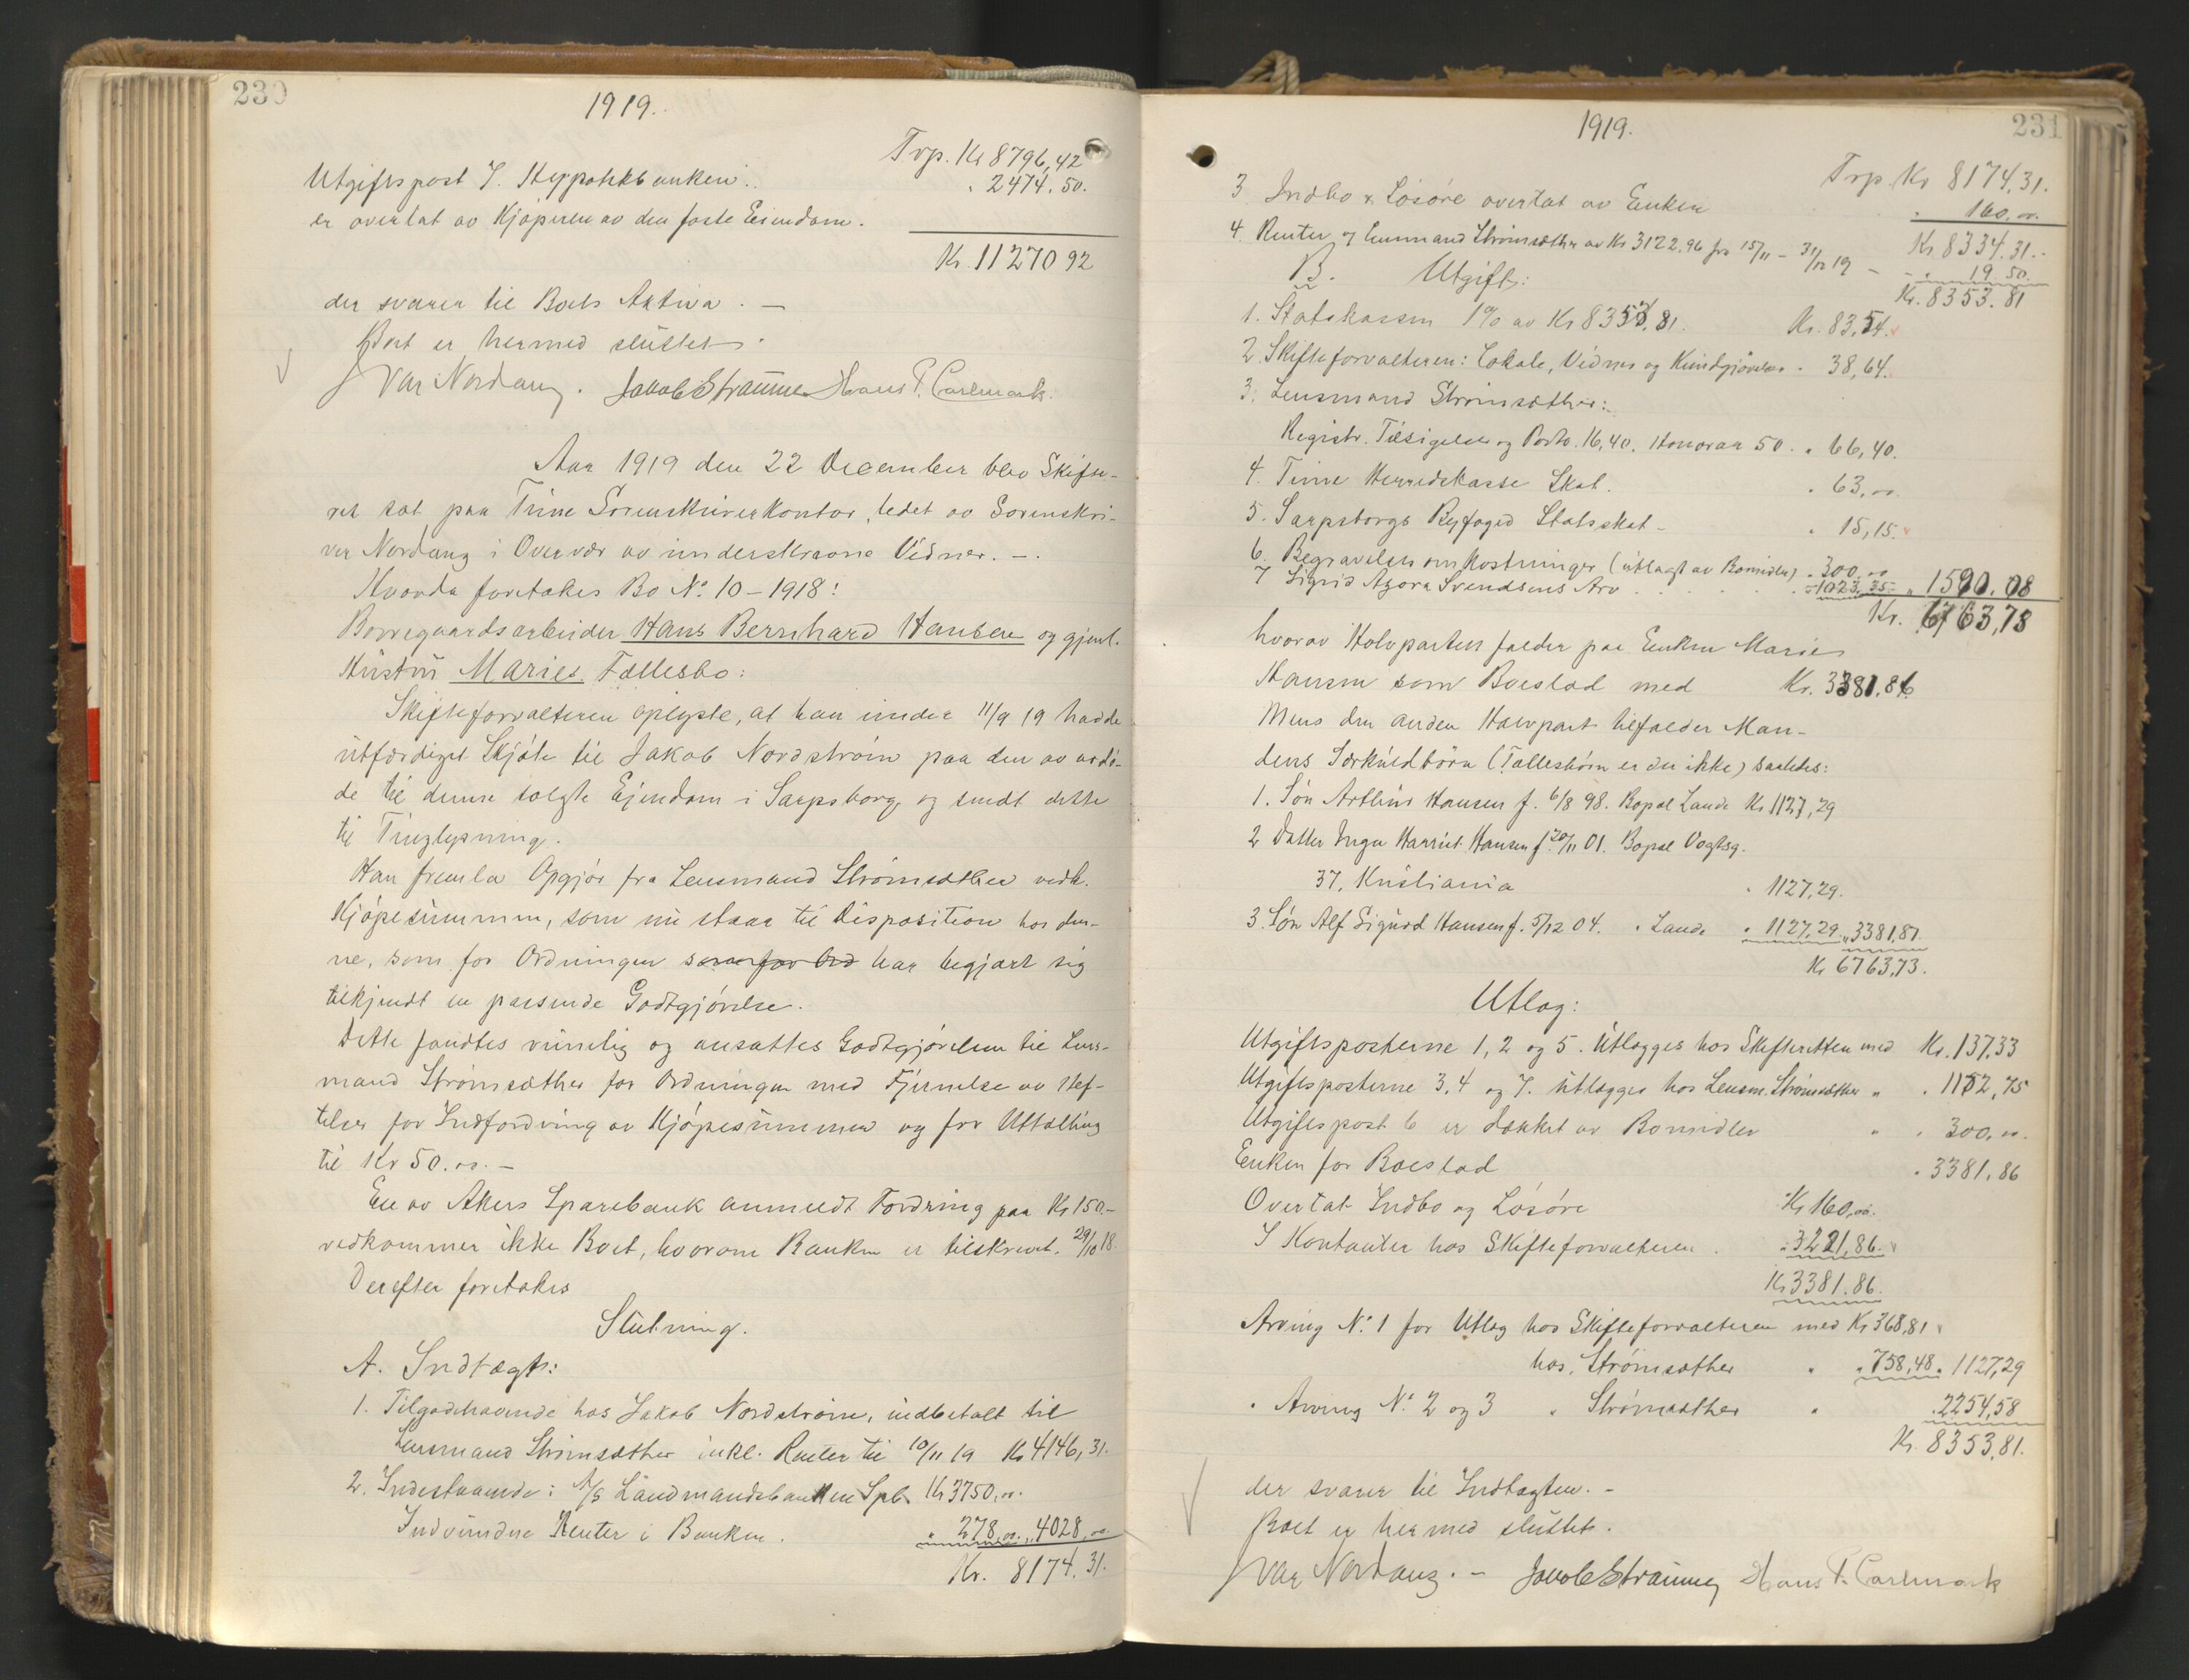 230
1919.
Trp. Kr 8796,42
Utgiftspost 7. Hypotekbanken.. " 2474.50.
er overtat av Kjøperen av den faste Eiendom.
Kr. 11270 92
der svarer til Boets Aktiva. —
Boet er hermed sluttet.
Ivar Nordang. Jakob Straume Hans P. Carlmark.
Aar 1919 den 22 December blev Skifte-
ret sat paa Tune Sorenskriverkontor, ledet av Sorenskri-
ver Nordang i Overvær av underskrevne Vidner. —.
Hvorda foretakes Bo No. 10 – 1918:
Borregaardsarbeider Hans Bernhard Hansen og gjenl.
Hustru Maries Fællesbo:
Skifteforvalteren oplyste, at han under 11/9 19 hadde
utfærdiget Skjøte til Jakob Nordstrøm paa den av avdø-
de til denne solgte Ejendom i Sarpsborg og sendt dette
til Tinglysning.
Han fremla Opgjør fra Lensmand Strømsæther vedk.
Kjøpesummen, som nu staar til Disposition hos den-
ne, som for Ordningen som for Ord har begjært sig
tilkjendt en passende Godtgjørelse.
Dette fandtes rimelig og ansattes Godtgjørelsen til Lens-
mand Strømsæther for Ordningen med Fjernelse av Hef-
telser for Indfordring av Kjøpesummen og for Uttælling
til Kr 50.00. —
En av Akers Sparebank anmeldt Fordring paa Kr 150.–
vedkommer ikke Boet, hvorom Banken er tilskrevet. 29/10 18.
Derefter foretakes
Slutning.
A. Indtægt:
1. Tilgodehavende hos Jakob Nordstrøm, indbetalt til
Lensmand Strømsæther inkl. Renter til 10/11 19 Kr 4146,31.
2. Indestaaende i A/S Landmandsbanken Spb. Kr 3750,00.
Indvundne Renter i Banken. " 278,00. " 4028,00
Kr. 8174.31.
231
1919.
Trp. Kr 8174,31.
3 Indbo & Løsøre overtat av Enken " 160,00.
Kr. 8334.31.
4. Renter af Lensmand Strømsæther av Kr 3122.96 fra 15/11 – 31/12 19 – " 19.50.
Kr. 8353.81
B. Utgift:
1. Statskassen 1% av Kr 8353,81. Kr. 83,54.
2 Skifteforvalteren: Lokale, Vidner og Kundgjørelser " 38,64.
3. Lensmand Strømsæther:
Registr. Tilsigelser og Porto. 16,40. Honorar 50. " 66,40.
4. Tune Herredskasse Skat. " 63,00.
5. Sarpsborgs Byfoged Statsskat – " 15,15.
6. Begravelses omkostninger (utlagt av Bomidler) " 300,00
7 Sigrid Agora Svendsens Arv . . . . " 1023.35 " 1590.08
Kr. 6763,73
hvorav Halvparten falder paa Enken Marie
Hansen som Boeslod med Kr. 3381.86
Mens den anden Halvpart tilfalder Man-
dens Særkuldbørn (Fællesbørn er der ikke) saaledes:
1. Søn Arthur Hansen f. 6/8 98. Bopæl Lande Kr 1127,29
2 Datter Inga Harriet Hansen f. 20/11 01. Bopæl Vogtsg.
37, Kristiania " 1127,29.
3. Søn Alf Sigurd Hansen f. 5/12 04. " Lande " 1127,29. " 3381,87.
Kr 6763,73.
Utlæg:
Utgiftsposterne 1, 2 og 5. Utlægges hos Skifteretten med Kr. 137.33
Utgiftsposterne 3. 4 og 7. utlægges hos Lensm. Strømsæther " " 1152,75
Utgiftspost 6 er dækket av Bomidler " " 300.00.
Enken for Boeslod " 3381.86
Overtat Indbo og Løsøre Kr 160,00.
I Kontanter hos Skifteforvalteren . " 3221,86.
Kr 3381.86.
Arving No. 1 for Utlæg hos Skifteforvalteren med Kr 368,81
hos Strømsæther " " 758,48 " 1127,29
" Arving No. 2 og 3 " Strømsæther " " 2254,58
Kr. 8353,81.
der svarer til Indtægten. –
Boet er hermed sluttet.
Ivar Nordang. – Jakob Straume Hans P. Carlmark